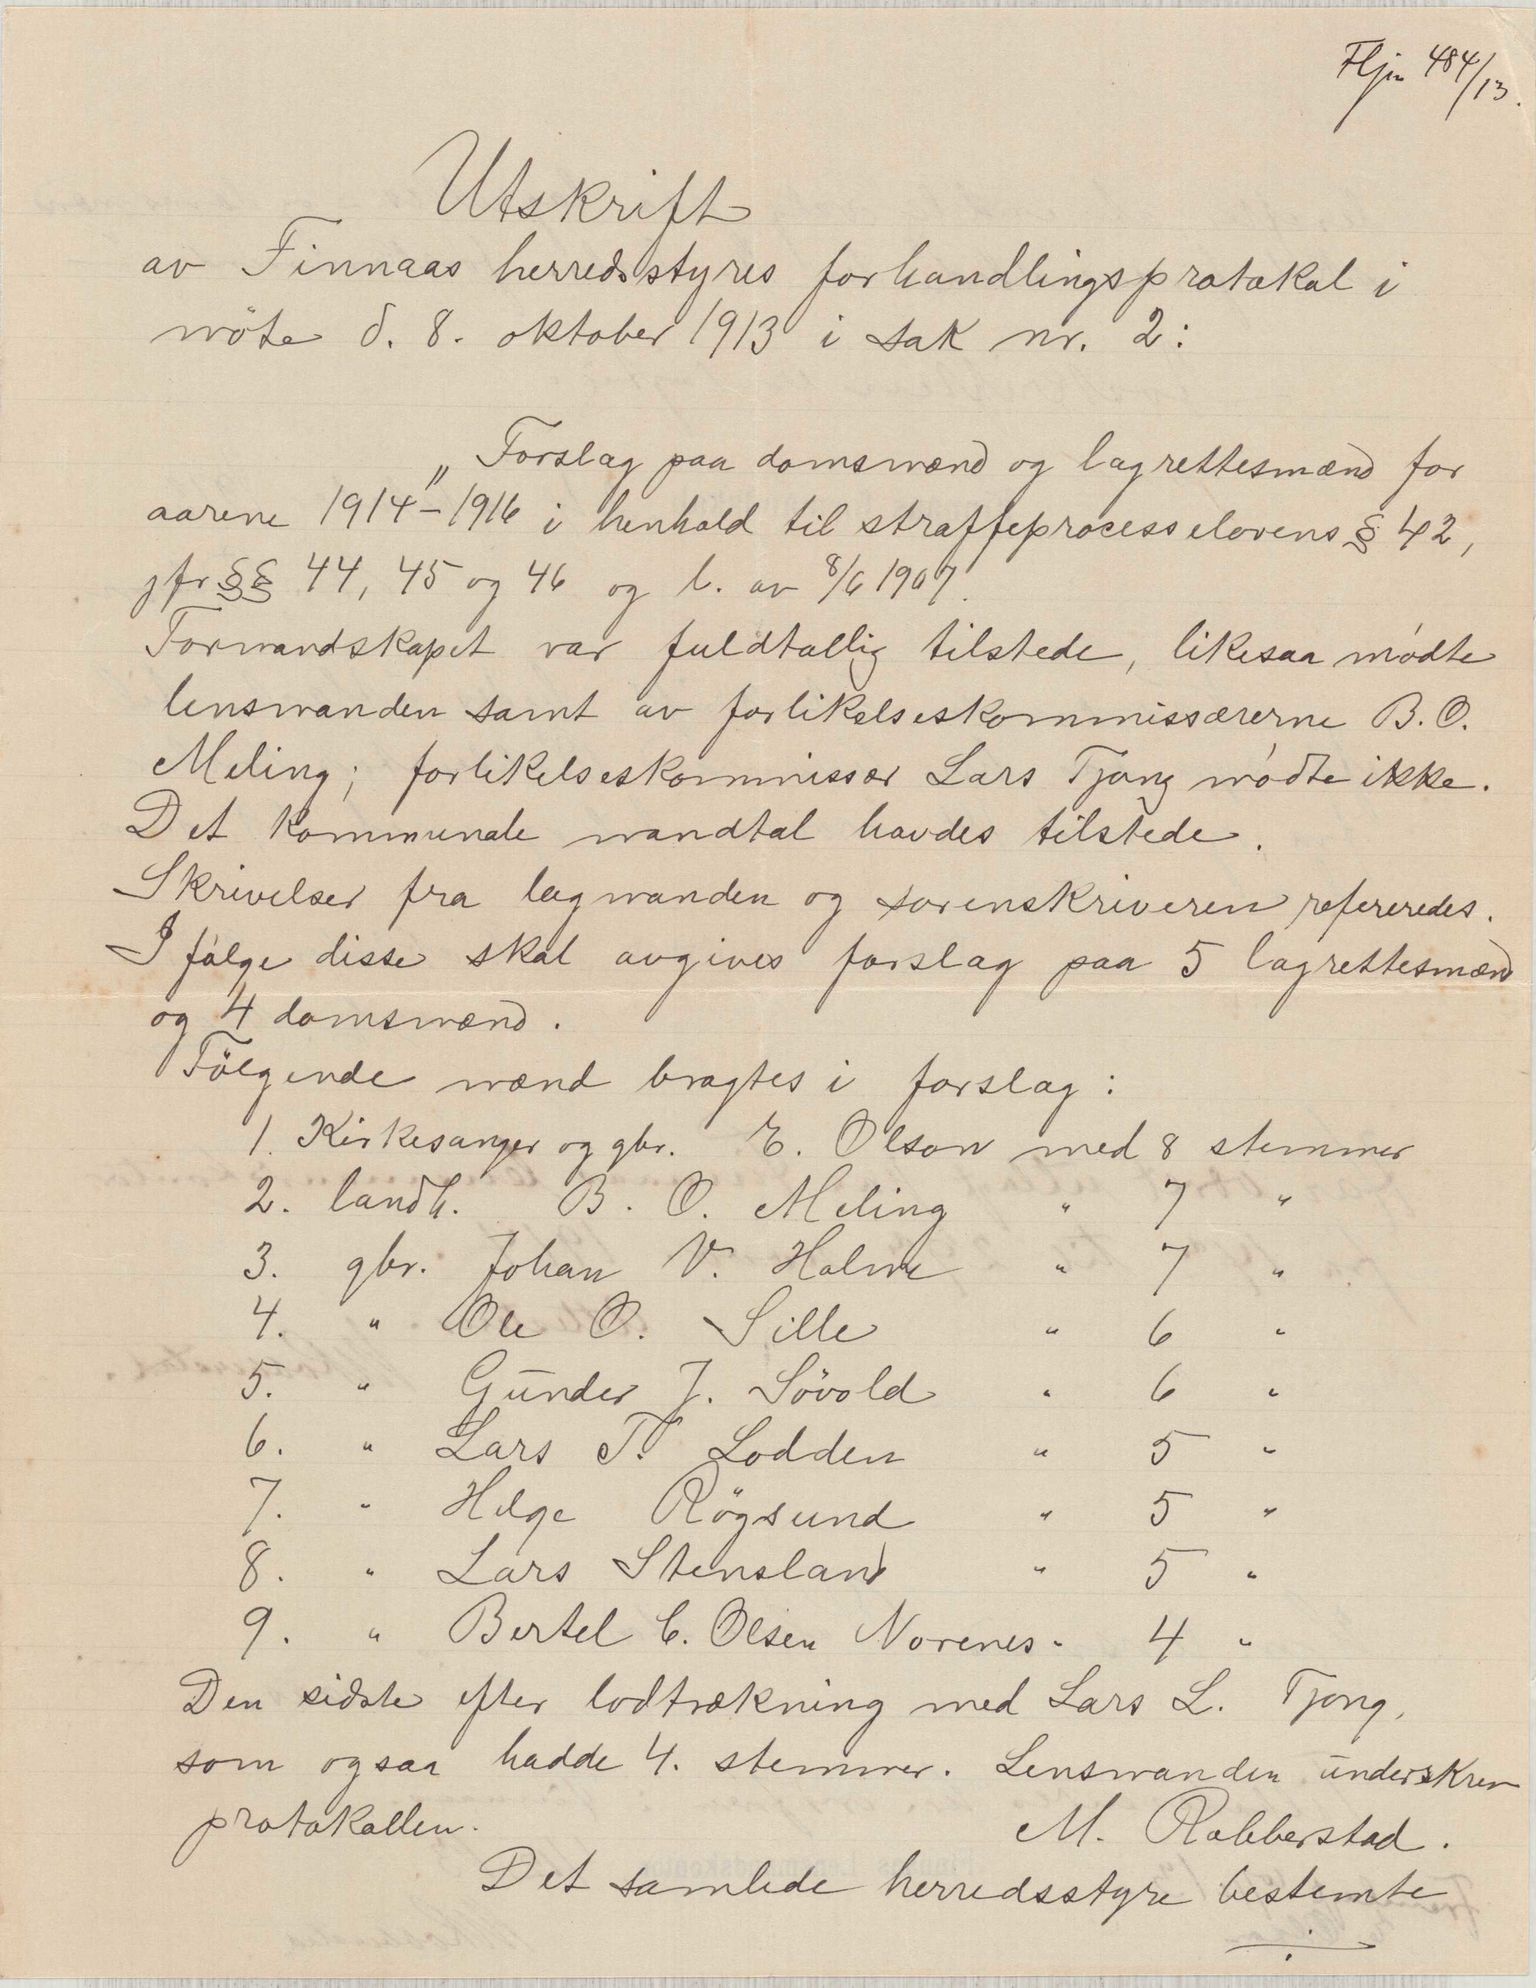 484/13.
Utskrift
av Finnaas herredsstyres forhandlingsprotokol i
möte d. 8. oktober 1913 i sak nr. 2:
„Forslag paa domsmænd og lagrettesmænd for
aarene 1914–1916 i henhold til straffeprocesselovens § 42,
jfr §§ 44, 45 og 46 og l. av 8/6 1907.
Formandskapet var fuldtallig tilstede, likesaa mødte
lensmanden samt av forlikelseskommissærerne B. O.
Meling; forlikelseskommissær Lars Tjong mødte ikke.
Det kommunale mandtal havdes tilstede.
Skrivelser fra lagmanden og sorenskriveren refereredes.
I følge disse skal avgives forslag paa 5 lagrettesmænd
og 4 domsmænd.
Følgende mænd bragtes i forslag:
1. Kirkesanger og gbr. E. Olson med 8 stemmer
2. landh. B. O. Meling " 7 "
3. gbr. Johan V. Holme " 7 "
4. " Ole O. Sille " 6 "
5. " Gunder J. Sövold " 6 "
6. " Lars T. Lodden " 5 "
7. " Helge Rögsund " 5 "
8. " Lars Stensland " 5 "
9. " Bertel C. Olsen Norenes " 4 "
Den sidste efter lodtrækning med Lars L. Tjong,
som ogsaa hadde 4. stemmer. Lensmanden underskrev
protokollen. M. Robberstad.
Det samlede herredsstyre bestemte